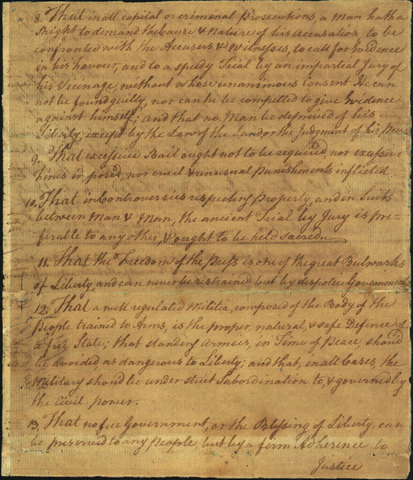 8. That in all capital or criminal Prosecutions, a Man hath a
Right to demand the Cause & Nature of his Accusation, to be
confronted with the Accusers & Witnesses, to call for Evidence
in his Favour, and to a speedy Trial by an impartial Jury of
his Vicinage; without whose unanimous Consent He can
not be found guilty, nor can he be compelled to give Evidence
against himself; and that no Man be deprived of his
Liberty, except by the Law of the Land, or the Judgment of his Peers.
9. That excessive Bail ought not to be required, nor excessive
Fines imposed, nor cruel & unusual Punishments inflicted.
10. That in Controversies respecting Property, and in Suits
between Man & Man, the ancient Trial by Jury is pre-
ferable to any other, & ought to be held sacred.
11. That the Freedom of the Press is one of the great Bulwarks
of Liberty, and can never be restrained but by despotic Governments.
12. That a well regulated Militia, composed of the Body of the
People trained to Arms, is the proper, natural, & safe Defence of
a free State; that standing Armies, in Time of Peace, should
be avoided as dangerous to Liberty; and that, in all Cases, the
Military should be under strict Subordination to, & governed by
the Civil power.
13. That no free Government, or the Blessing of Liberty, can
be preserved to any People, but by a firm Adherence to
Justice